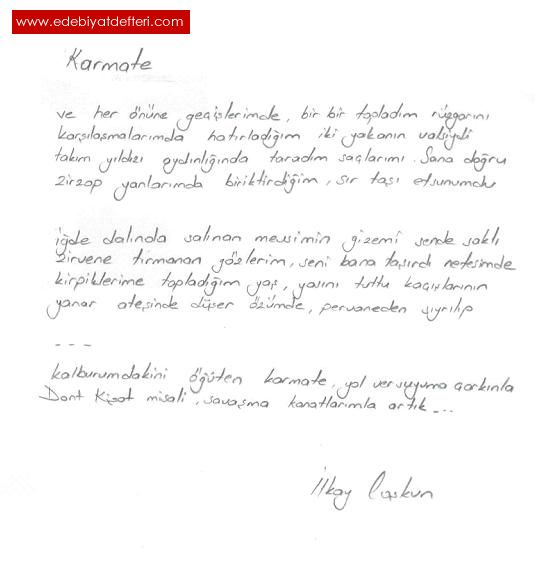 www.edebiyatdefteri.com
Karmate
ve her önüne geçişlerimde, bir bir topladım rüzgarını
karşılaşmalarımda hatırladığım iki yakanın valsiydi
takım yıldızı aydınlığında taradım saçlarımı. Sana doğru
zirzop yanlarımda biriktirdiğim, sır taşı efsunumdu
iğde dalında salınan mevsimin gizemi sende saklı
zirvene tırmanan gözlerim, seni bana taşırdı nefesimde
kirpiklerime topladığım yaş, yasını tuttu kaçışlarının
yanar ateşinde düşer özümde, pervaneden sıyrılıp
- - -
kalburumdakini öğüten karmate, yol ver suyuma çarkınla
Dont Kişot misali, savaşma kanatlarımla artık...
İlkay Coşkun